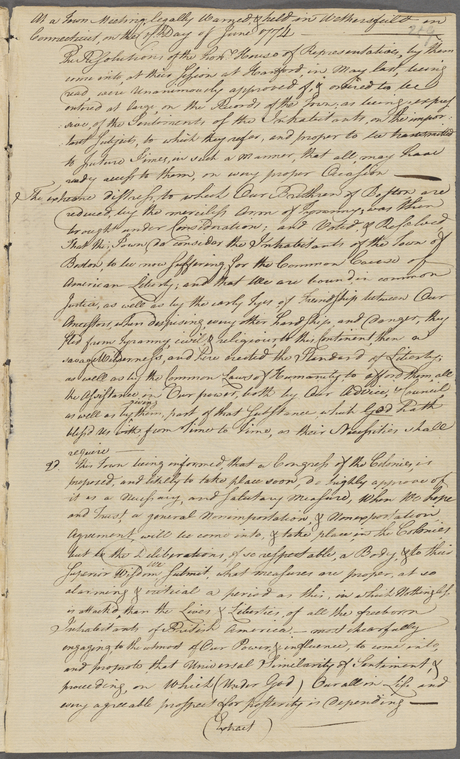 At a Town Meeting legally Warned & held in Wethersfield in
Connecticut, on the 16th Day of June 1774 —
The Resolutions of the Hon. House of Representatives, by them
come into at their Session at Hartford, in May last, being
read were Unanimously approved of, & ordered to be
entered at large, on the Records of the Town, as being expres
sive of the Sentiments of the Inhabitants, on the impor-
tant Subjects, to which they refer, and proper to be transmitted
to future Times, in such a manner, that all may have
ready access to them, on every proper Ocassion —
The extreme distress, to which Our Brethren of Boston are
reduced, by the merciless Arm of Tyranny, was then
brought under Consideration; and Voted & Resolved
That this Town do consider the Inhabitants of the Town of
Boston, to be now suffering, for the Common Cause of
American Liberty; and that We are bound, in common
Justice, as well as by the early tyes of Friendship between Our
Ancestors, when despising every other hardship, and danger, they
fled from tyranny, civil & religious, to this Continent then a
savage Wilderness, and here erected the Standard of Liberty;
as well as by the Common Laws of Humanity, to afford them, all
the Assistance, in Our power, both by Our Advice, & Council
as well as by giving them, part of that Substance which God hath
bless'd Us with, from Time to Time, as their Necessities shall
require —
2d This Town being informed, that a Congress of the Colonies, is
proposed, and likely to take place soon, do highly approve of
it as a Necessary, and salutary measure, When We hope
and trust, a general Nonimportation, & Nonexportation
Agreement, will be come into, & take place in the Colonies
but to the Deliberations, of so respectable, a Body, & to their
Superior Wisdom we Submit, what measures are proper, at so
alarming & critical a period as this, in which Nothing less
is attack'd, than the Lives & Liberties, of all the freeborn
Inhabitants of British America — most chearfully
engaging to the utmost of Our Power, & influence, to come into,
and promote that Universal Similarity of Sentiment, &
proceeding, on Which (Under God) Our all in Life and
every agreeable prospect for posterity is Depending —
(Extract)